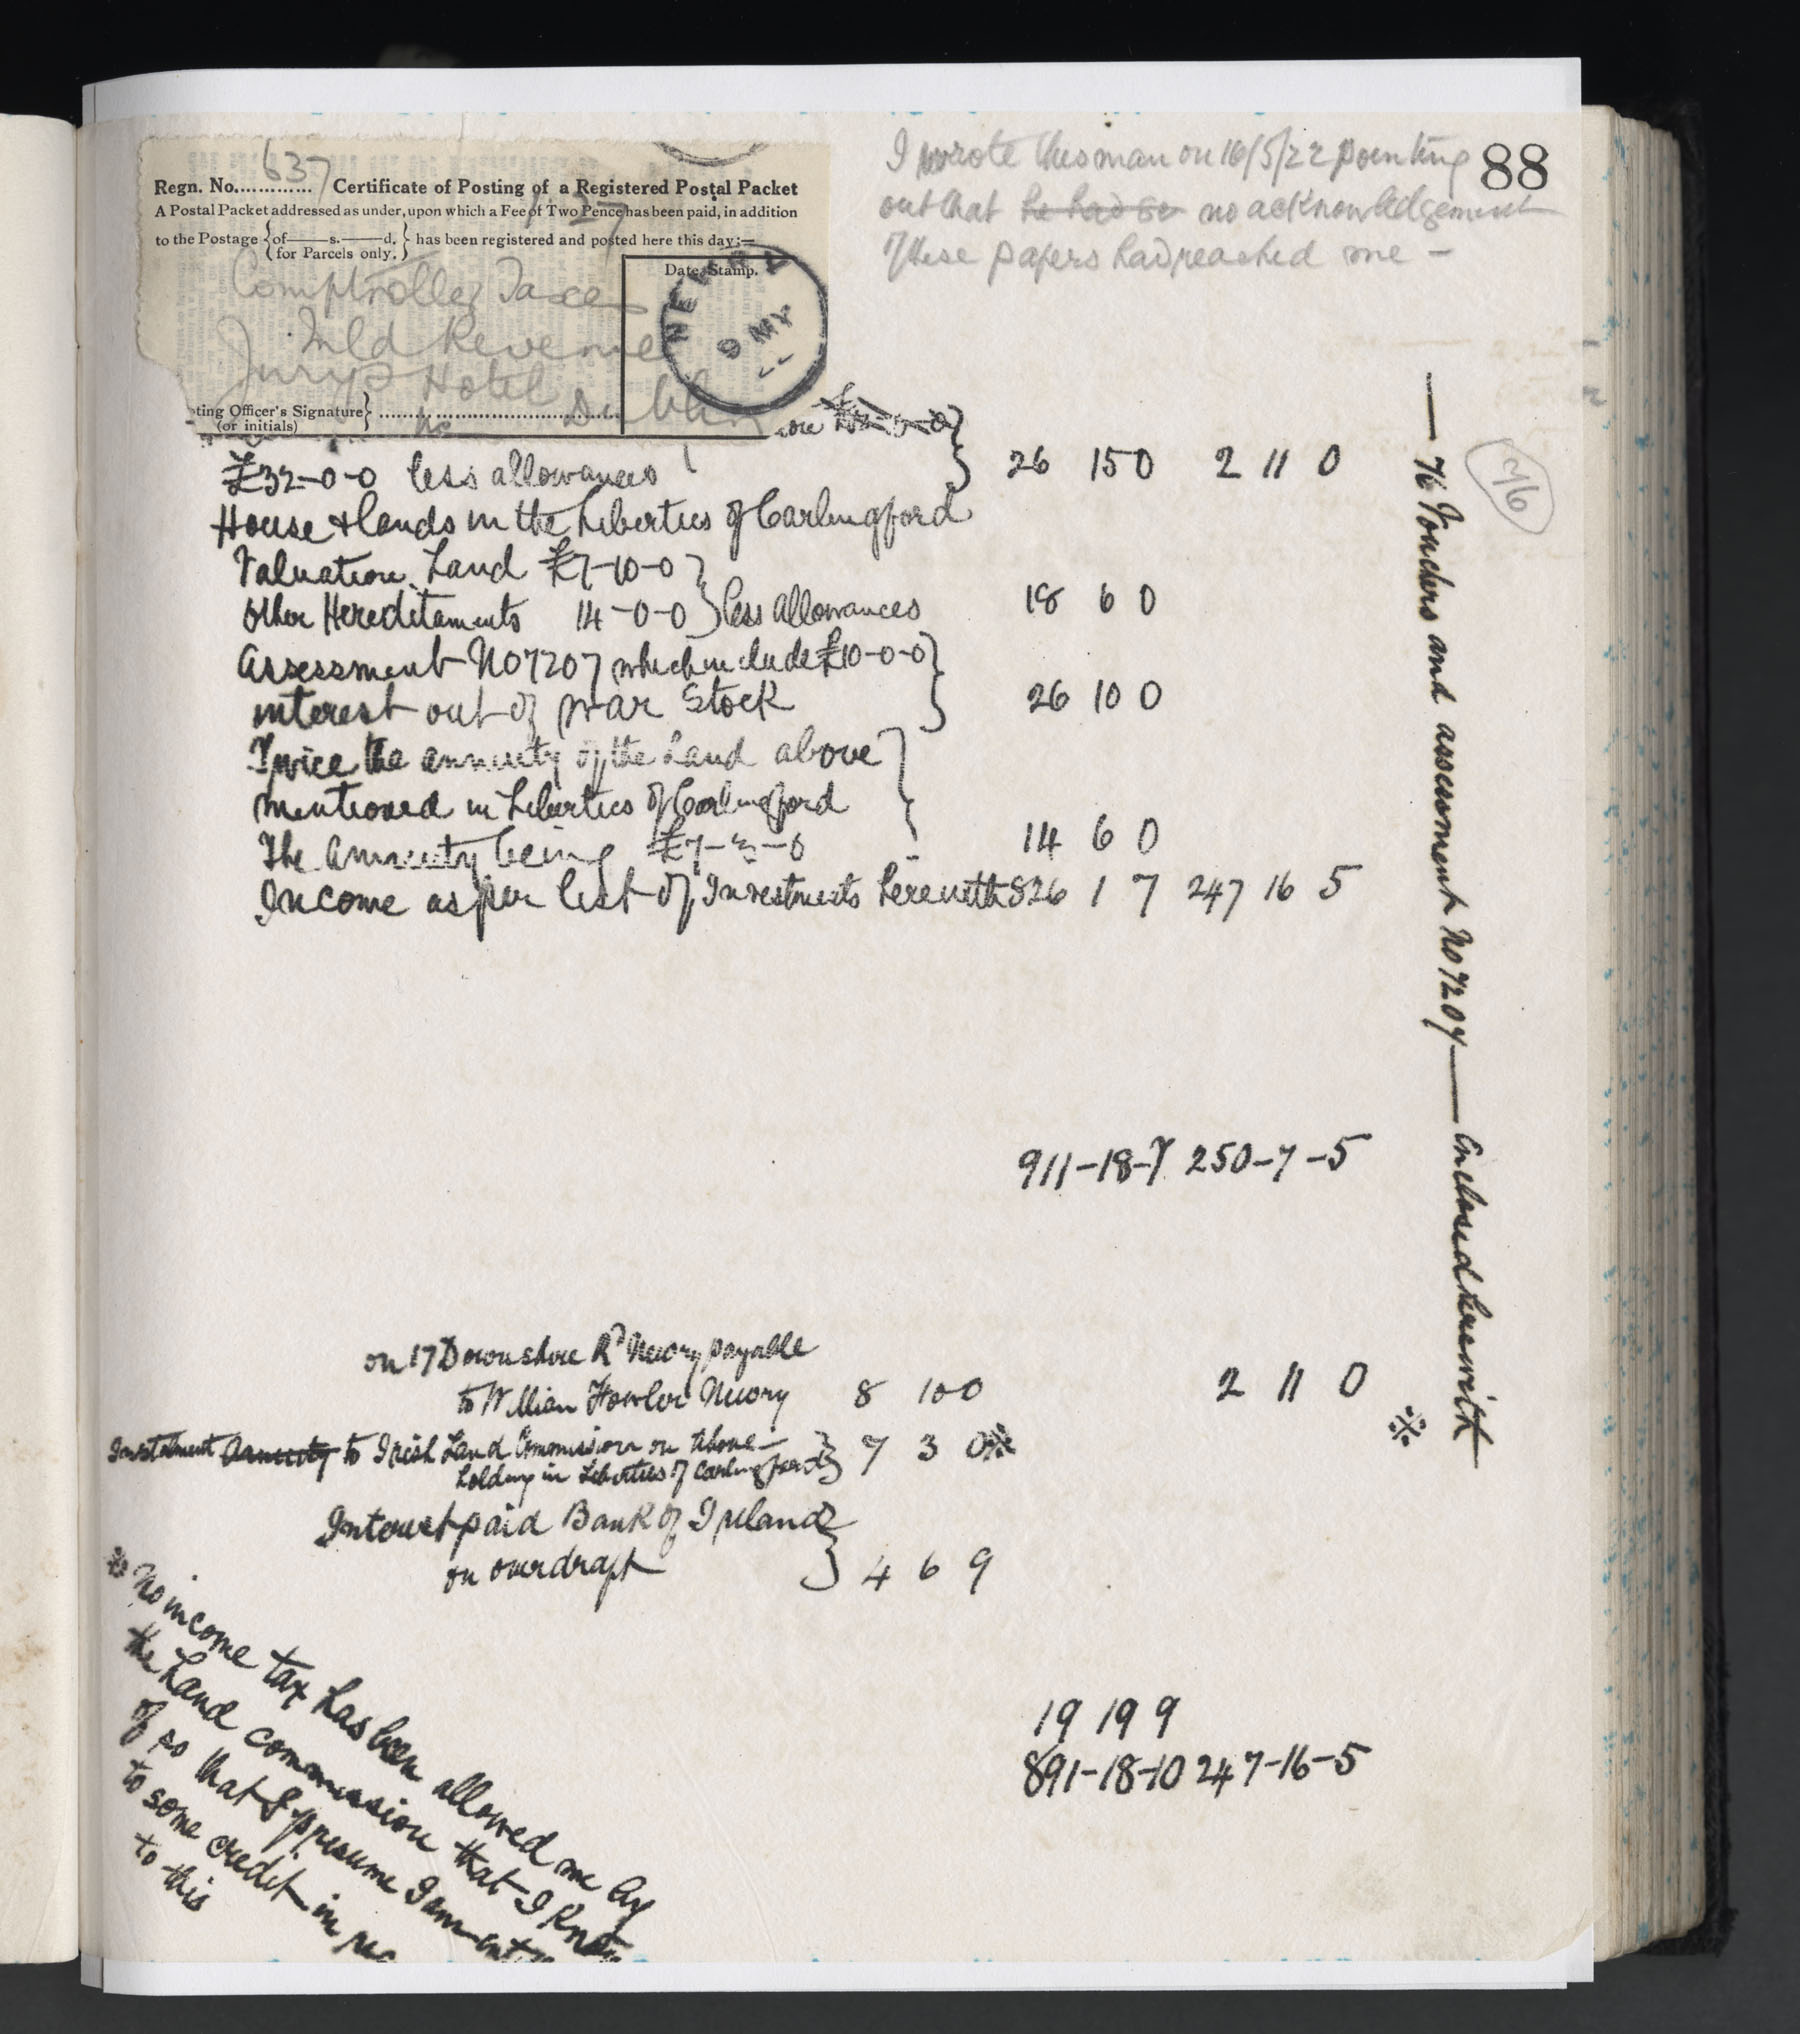 I wrote this man on 16/5/22 pointing
out that he had so no acknowledgement
of these papers had reached me -
88
637
Regn. No............. Certificate of Posting of a Registered Postal Packet
A Postal Packet addressed as under, upon which a Fee of Two Pence has been paid, in addition
to the Postage { of——s.——d. } has been registered and posted here this day:—
(for Parcels only.)
Date Stamp.
NEWRY
9 MY
Comptroller Taxes
Inld Revenue
Jurys Hotel
Dublin
ting Officer's Signature } ..............................
(or initials)
£32-0-0 less allowances } 26 15 0 2 11 0
House & lands in the Liberties of Carlingford
Valuation Land £7-10-0 }
Other Hereditaments 14-0-0 } less allowances 18 6 0
Assessment No 7207 which include £10-0-0 }
interest out of War Stock } 26 10 0
Twice the annuity of the Land above }
mentioned in Liberties of Carlingford }
The annuity being £7-3-0 14 6 0
Income as per list of Investments herewith 826 1 7 247 16 5
911-18-7 250-7-5
— 76 Vouchers and assessment No 7207 — Enclosed herewith
76
on 17 Downshire Rd Newry payable
to William Fowler Newry 8 10 0 2 11 0
Instalment Annuity to Irish Land Commission on above
holding in Liberties of Carlingford } 7 3 0 ※ ※
Interest paid Bank of Ireland }
on overdraft } 4 6 9
19 19 9
891-18-10 247-16-5
※ No income tax has been allowed me by
the Land commission that I know
of so that I presume I am
to some credit in
to this